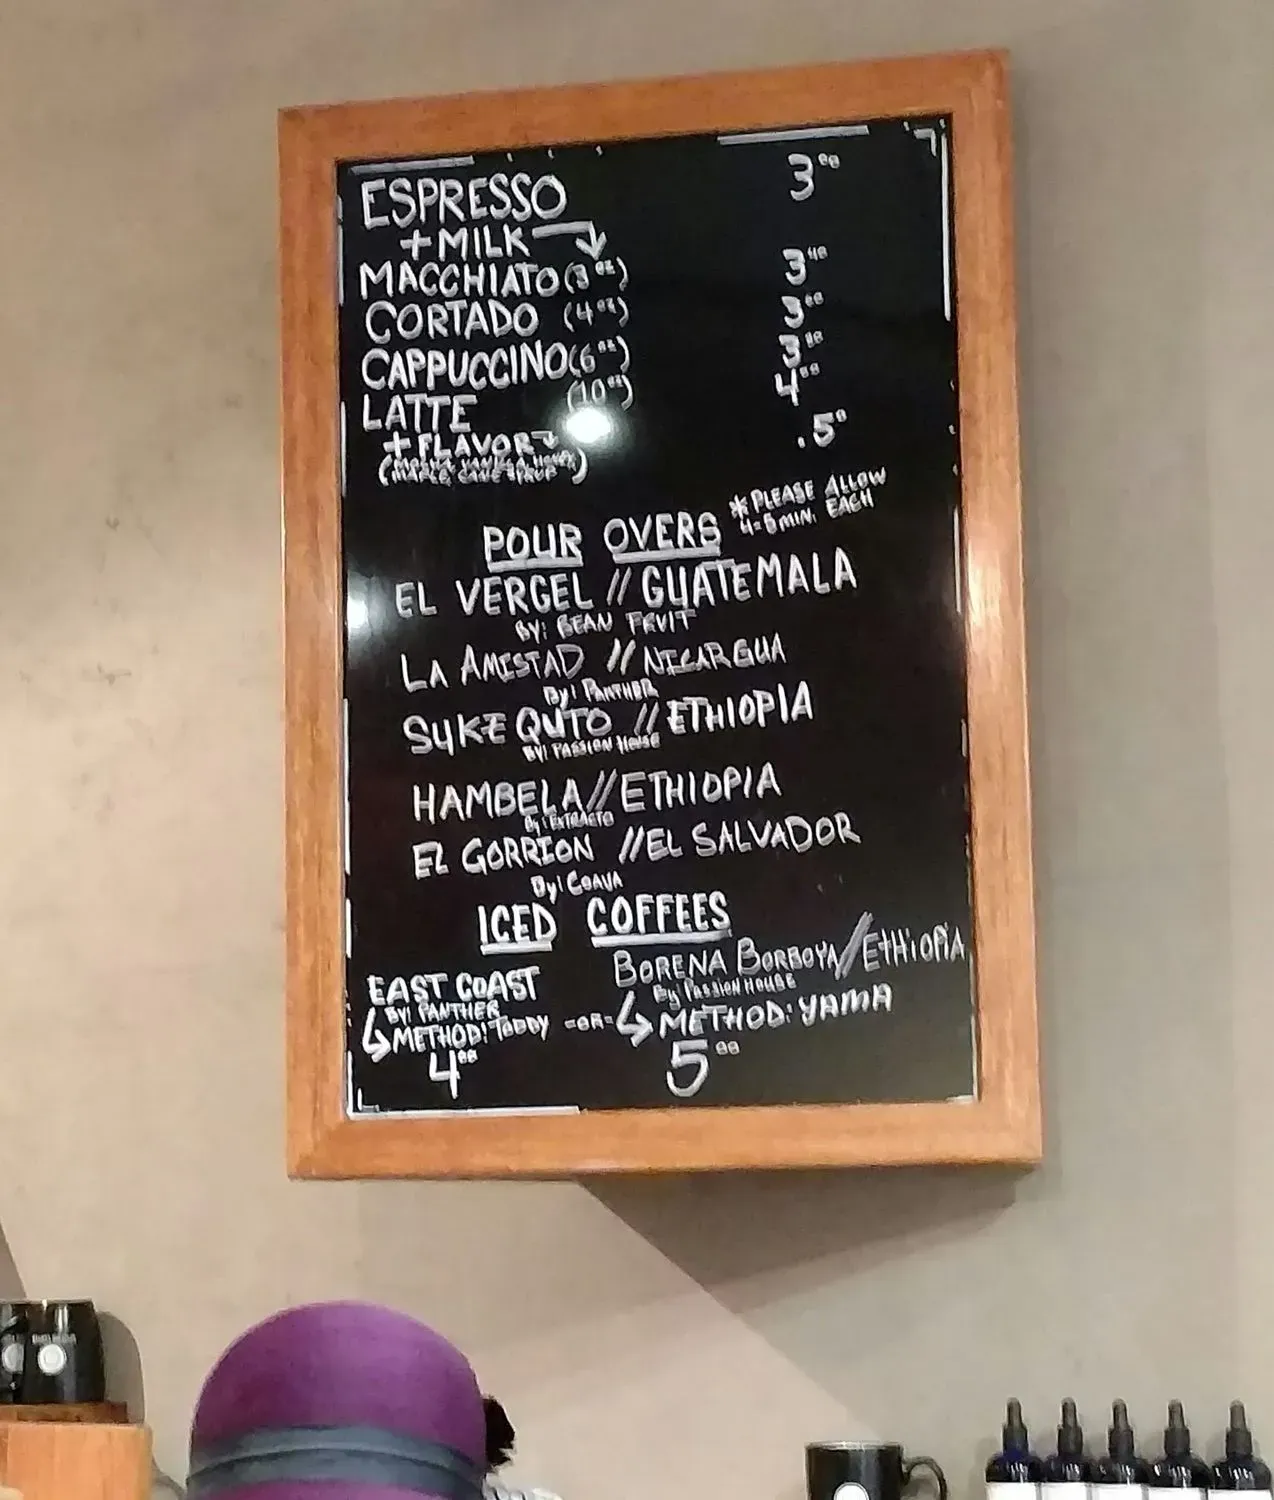 ESPRESSO 3⁰⁰
+ MILK
MACCHIATO (3 oz) 3⁴⁰
CORTADO (4 oz) 3
CAPPUCCINO (6 oz) 3
LATTE (10 oz) 4
+ FLAVOR .5⁰
(MOCHA, VANILLA, HONEY,
MAPLE, CANE SYRUP)
POUR OVERS
*PLEASE ALLOW
MIN. EACH
EL VERGEL // GUATEMALA
BY: BEAN FRUIT
LA AMISTAD // NICARGUA
By: PANTHER
SUKE QUTO // ETHIOPIA
BY: PASSION HOUSE
HAMBELA // ETHIOPIA
By: EXTRACTO
EL GORRION // EL SALVADOR
By: COAVA
ICED COFFEES
EAST COAST
BY: PANTHER
METHOD: TODDY
4⁰⁰
-OR-
BORENA BORBOYA // ETHIOPIA
By: PASSION HOUSE
METHOD: YAMA
5⁰⁰